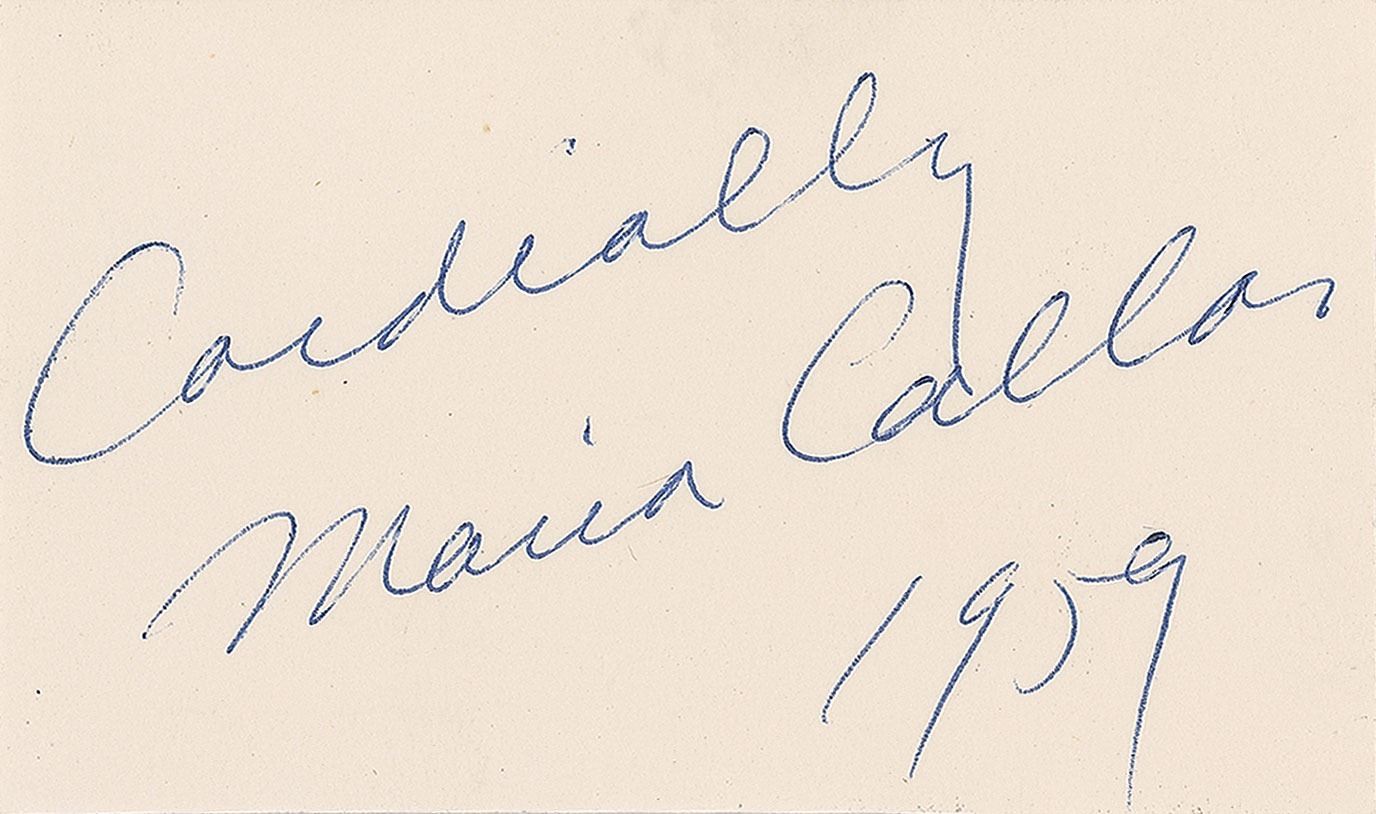 Cordially
Maria Callas
1959